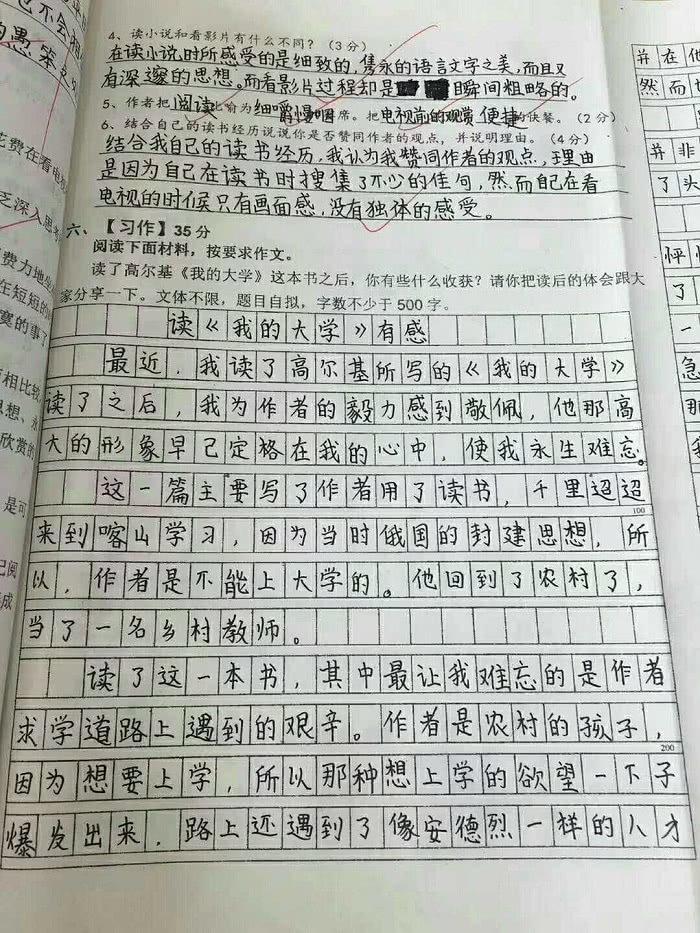 4、读小说和看影片有什么不同？（3分）
在读小说时所感受的是细致的，隽永的语言文字之美，而且又
有深邃的思想。而看影片过程却是瞬间粗略的。
5、作者把阅读比喻为细嚼慢咽的席。把电视前的观赏便捷的快餐。（2分）
6、结合自己的读书经历说说你是否赞同作者的观点，并说明理由。（4分）
结合我自己的读书经历，我认为我赞同作者的观点，理由
是因为自己在读书时搜集了不心的佳句，然而自己在看
电视的时候只有画面感，没有独体的感受。
六、【习作】35分
阅读下面材料，按要求作文。
读了高尔基《我的大学》这本书之后，你有些什么收获？请你把读后的体会跟大
家分享一下。文体不限，题目自拟，字数不少于500字。
读《我的大学》有感
最近，我读了高尔基所写的《我的大学》
读了之后，我为作者的毅力感到敬佩，他那高
大的形象早已定格在我的心中，使我永生难忘。
这一篇主要写了作者用了读书，千里迢迢
100
来到喀山学习，因为当时俄国的封建思想，所
以，作者是不能上大学的。他回到了农村了，
当了一名乡村教师。
读了这一本书，其中最让我难忘的是作者
求学道路上遇到的艰辛。作者是农村的孩子，
200
因为想要上学，所以那种想上学的欲望一下子
爆发出来，路上还遇到了像安德烈一样的人才
不会
的愚笨
花费在看电
乏深入思
费力地
在短短的
寞的事了
相比较
思想、永
欣赏的
是可
己阅
成
并在他
然而
并非
了头
怦
了
急